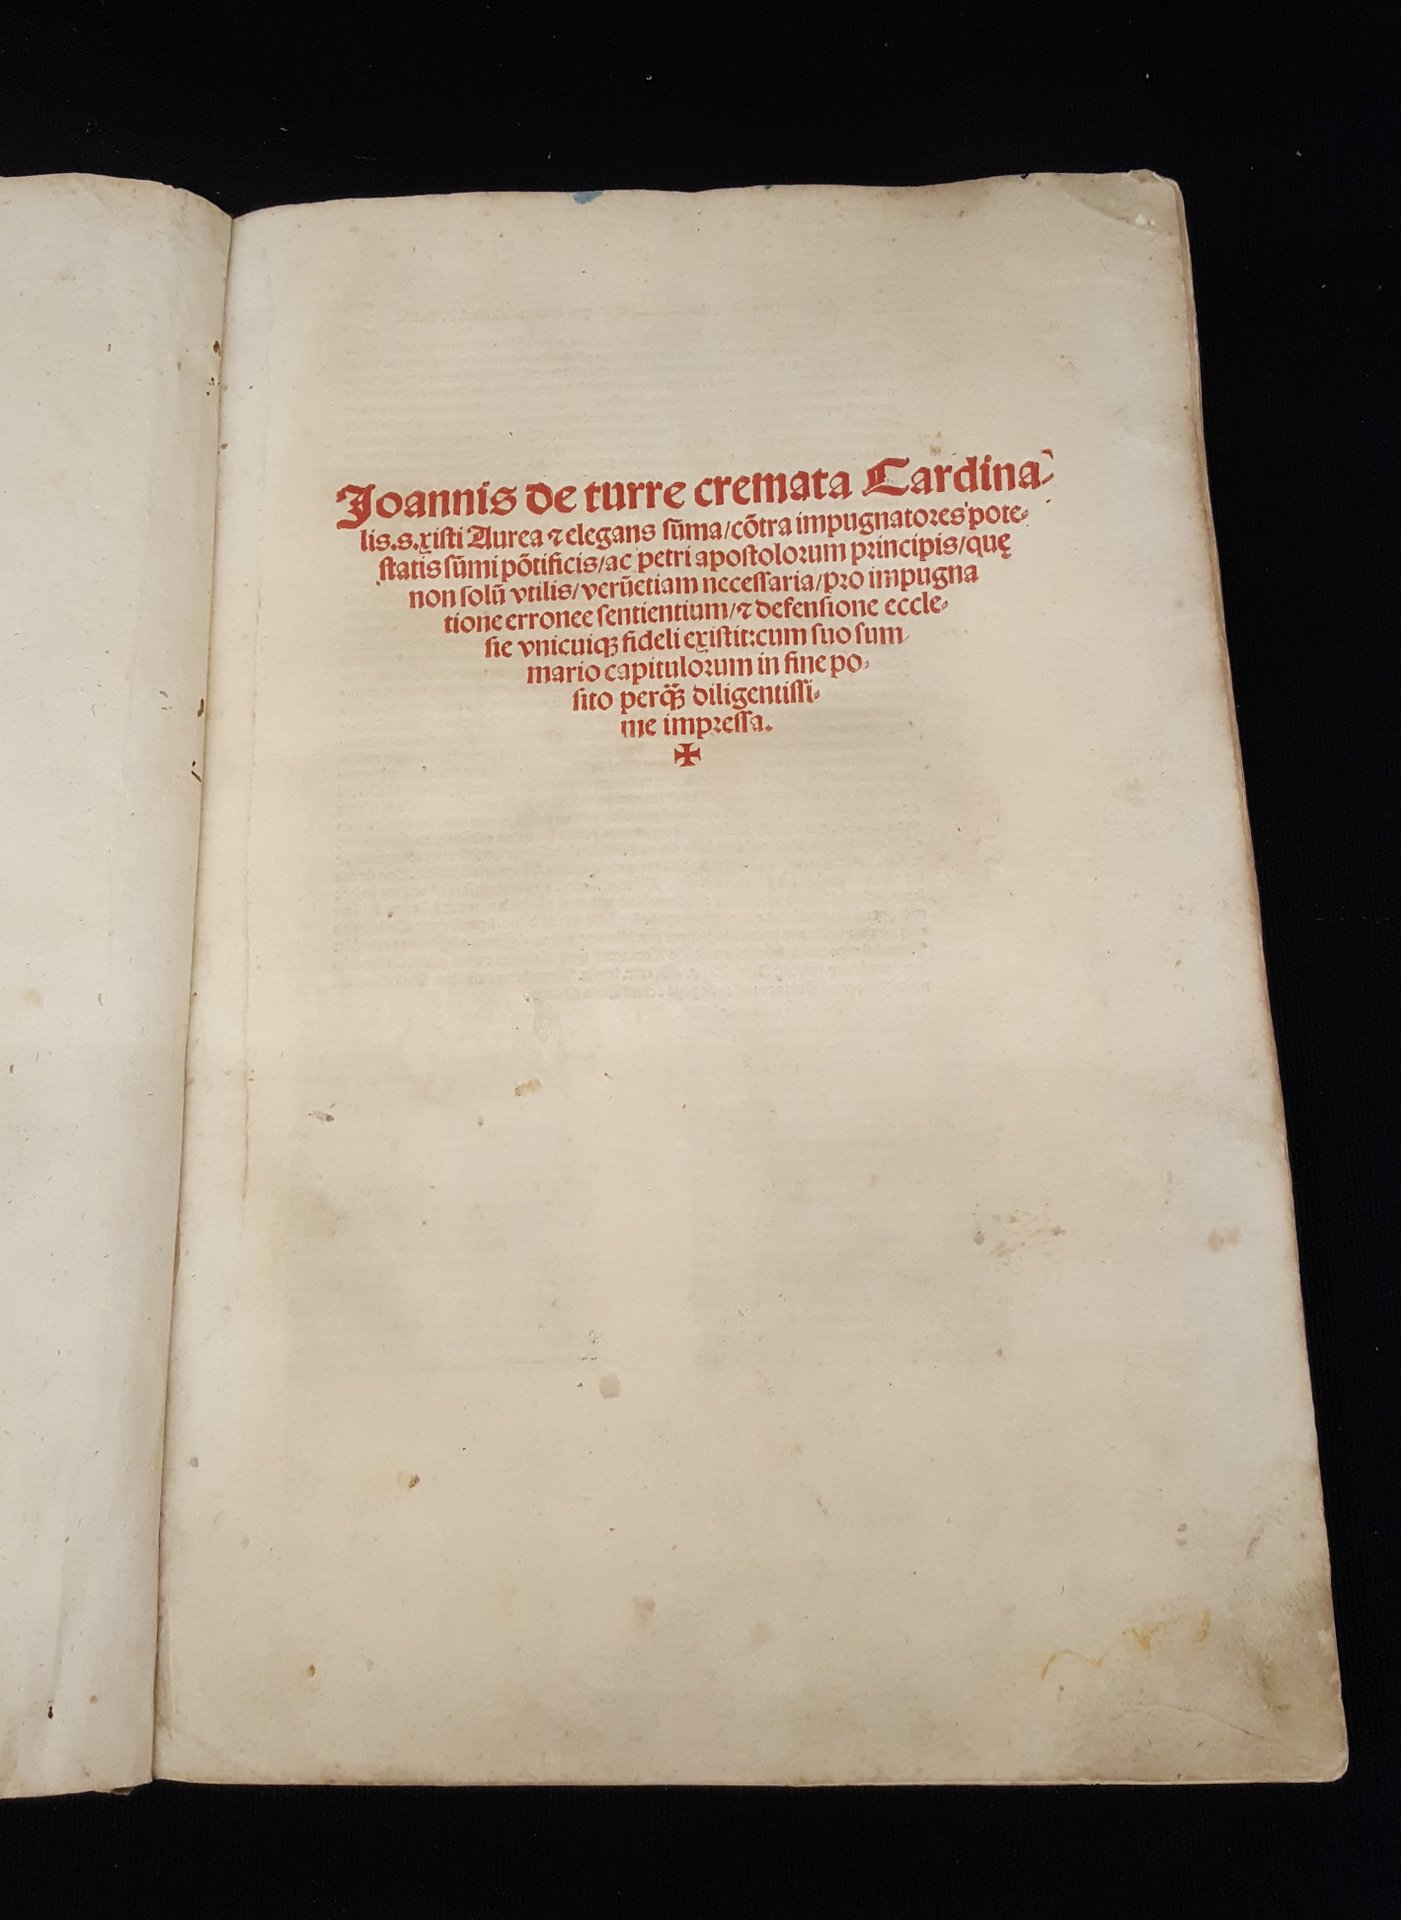 Joannis de turre cremata Cardina-
lis.s.xisti Aurea ⁊ elegans sũma/cõtra impugnatores pote-
statis sũmi põtificis/ac petri apostolorum principis/quę
non solũ vtilis/verũetiam necessaria/pro impugna
tione erronee sentientium/⁊ defensione eccle-
sie vnicuiqꝫ fideli existit:cum suo sum-
mario capitulorum in fine po-
sito perqꝫ̃ diligentissi-
me impressa.
✠